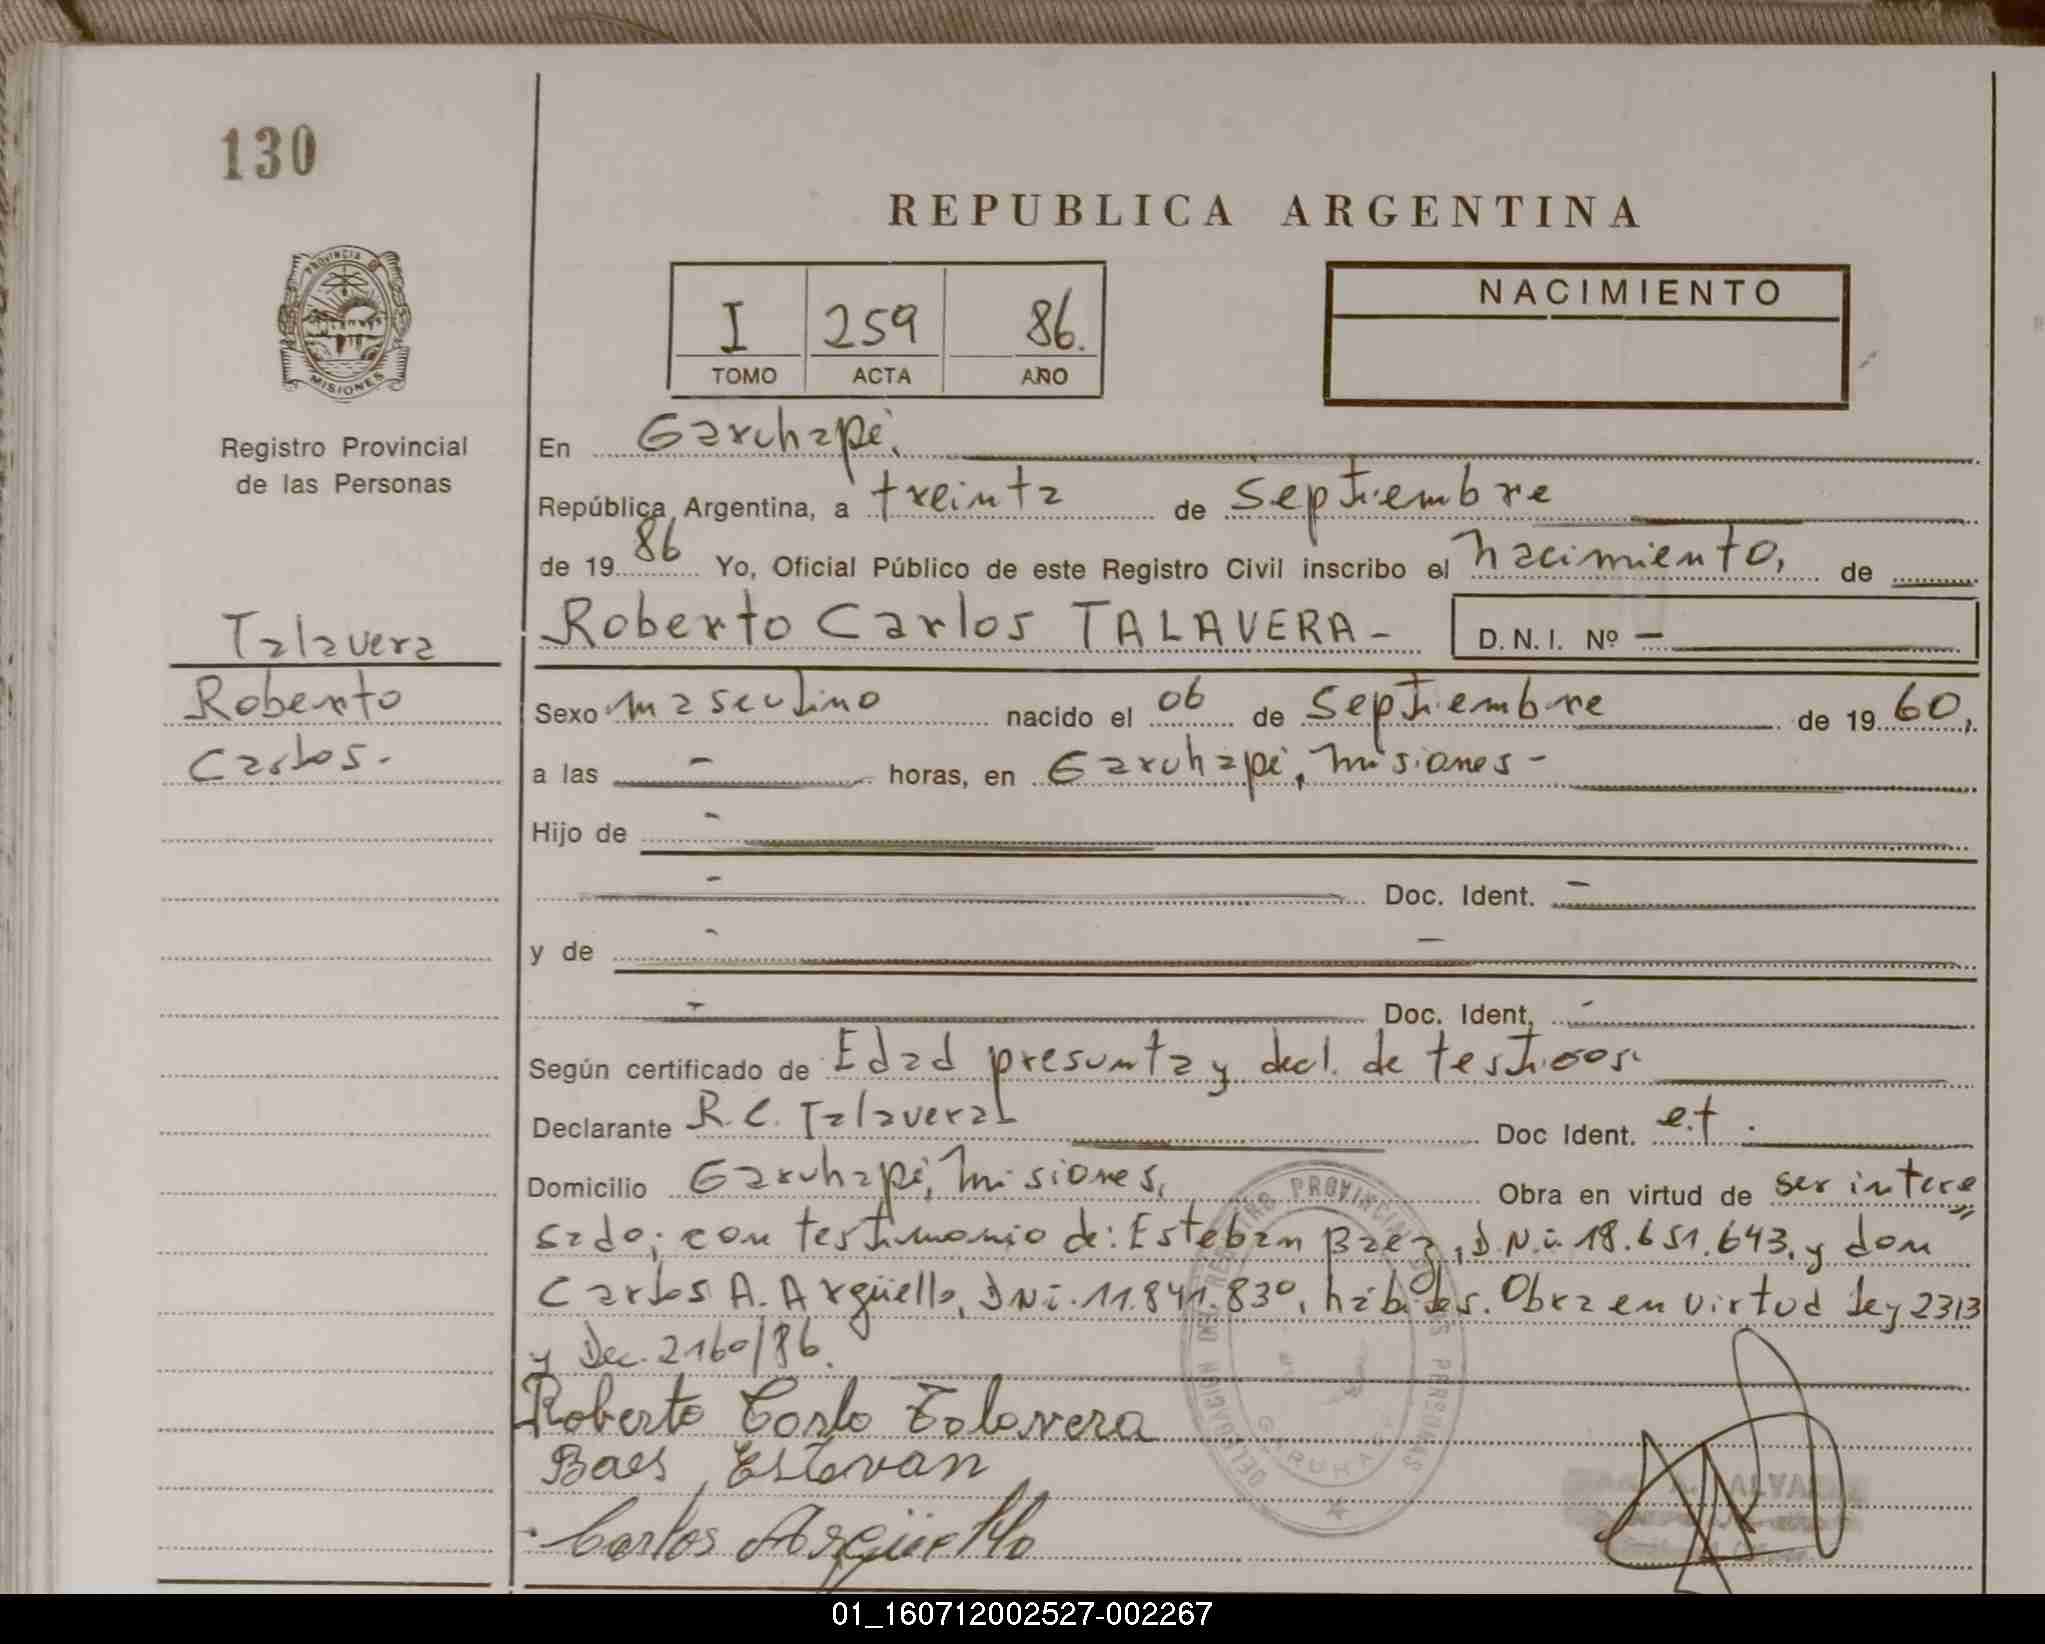 130
REPUBLICA ARGENTINA
PROVINCIA DE
MISIONES
I 259 86.
TOMO ACTA AÑO
NACIMIENTO
Registro Provincial
de las Personas
En Garuhapé,
República Argentina, a treinta de Septiembre
de 19 86 Yo, Oficial Público de este Registro Civil inscribo el nacimiento, de
Talavera
Roberto Carlos TALAVERA - D.N.I. Nº —
Roberto
Sexo masculino nacido el 06 de Septiembre de 1960,
Carlos.-
a las - horas, en Garuhapé, Misiones -
Hijo de -
- Doc. Ident. -
y de - -
- Doc. Ident. -
Según certificado de Edad presunta y decl. de testigos.
Declarante R.C. Talavera Doc Ident. e.t.
Domicilio Garuhapé, Misiones, Obra en virtud de ser intere
sado; con testimonio de: Esteban Baez, D.N.i. 18.651.643, y don
Carlos A. Argüello, DNi. 11.841.830, hábiles. Obra en virtud Ley 2313
y Dec. 2160/86.
Roberto Carlo Talavera
Baes Estevan
Carlos Argüello
REGISTRO PROVINCIAL DE LAS PERSONAS
DELEGACION
GARUHAPE
01_160712002527-002267